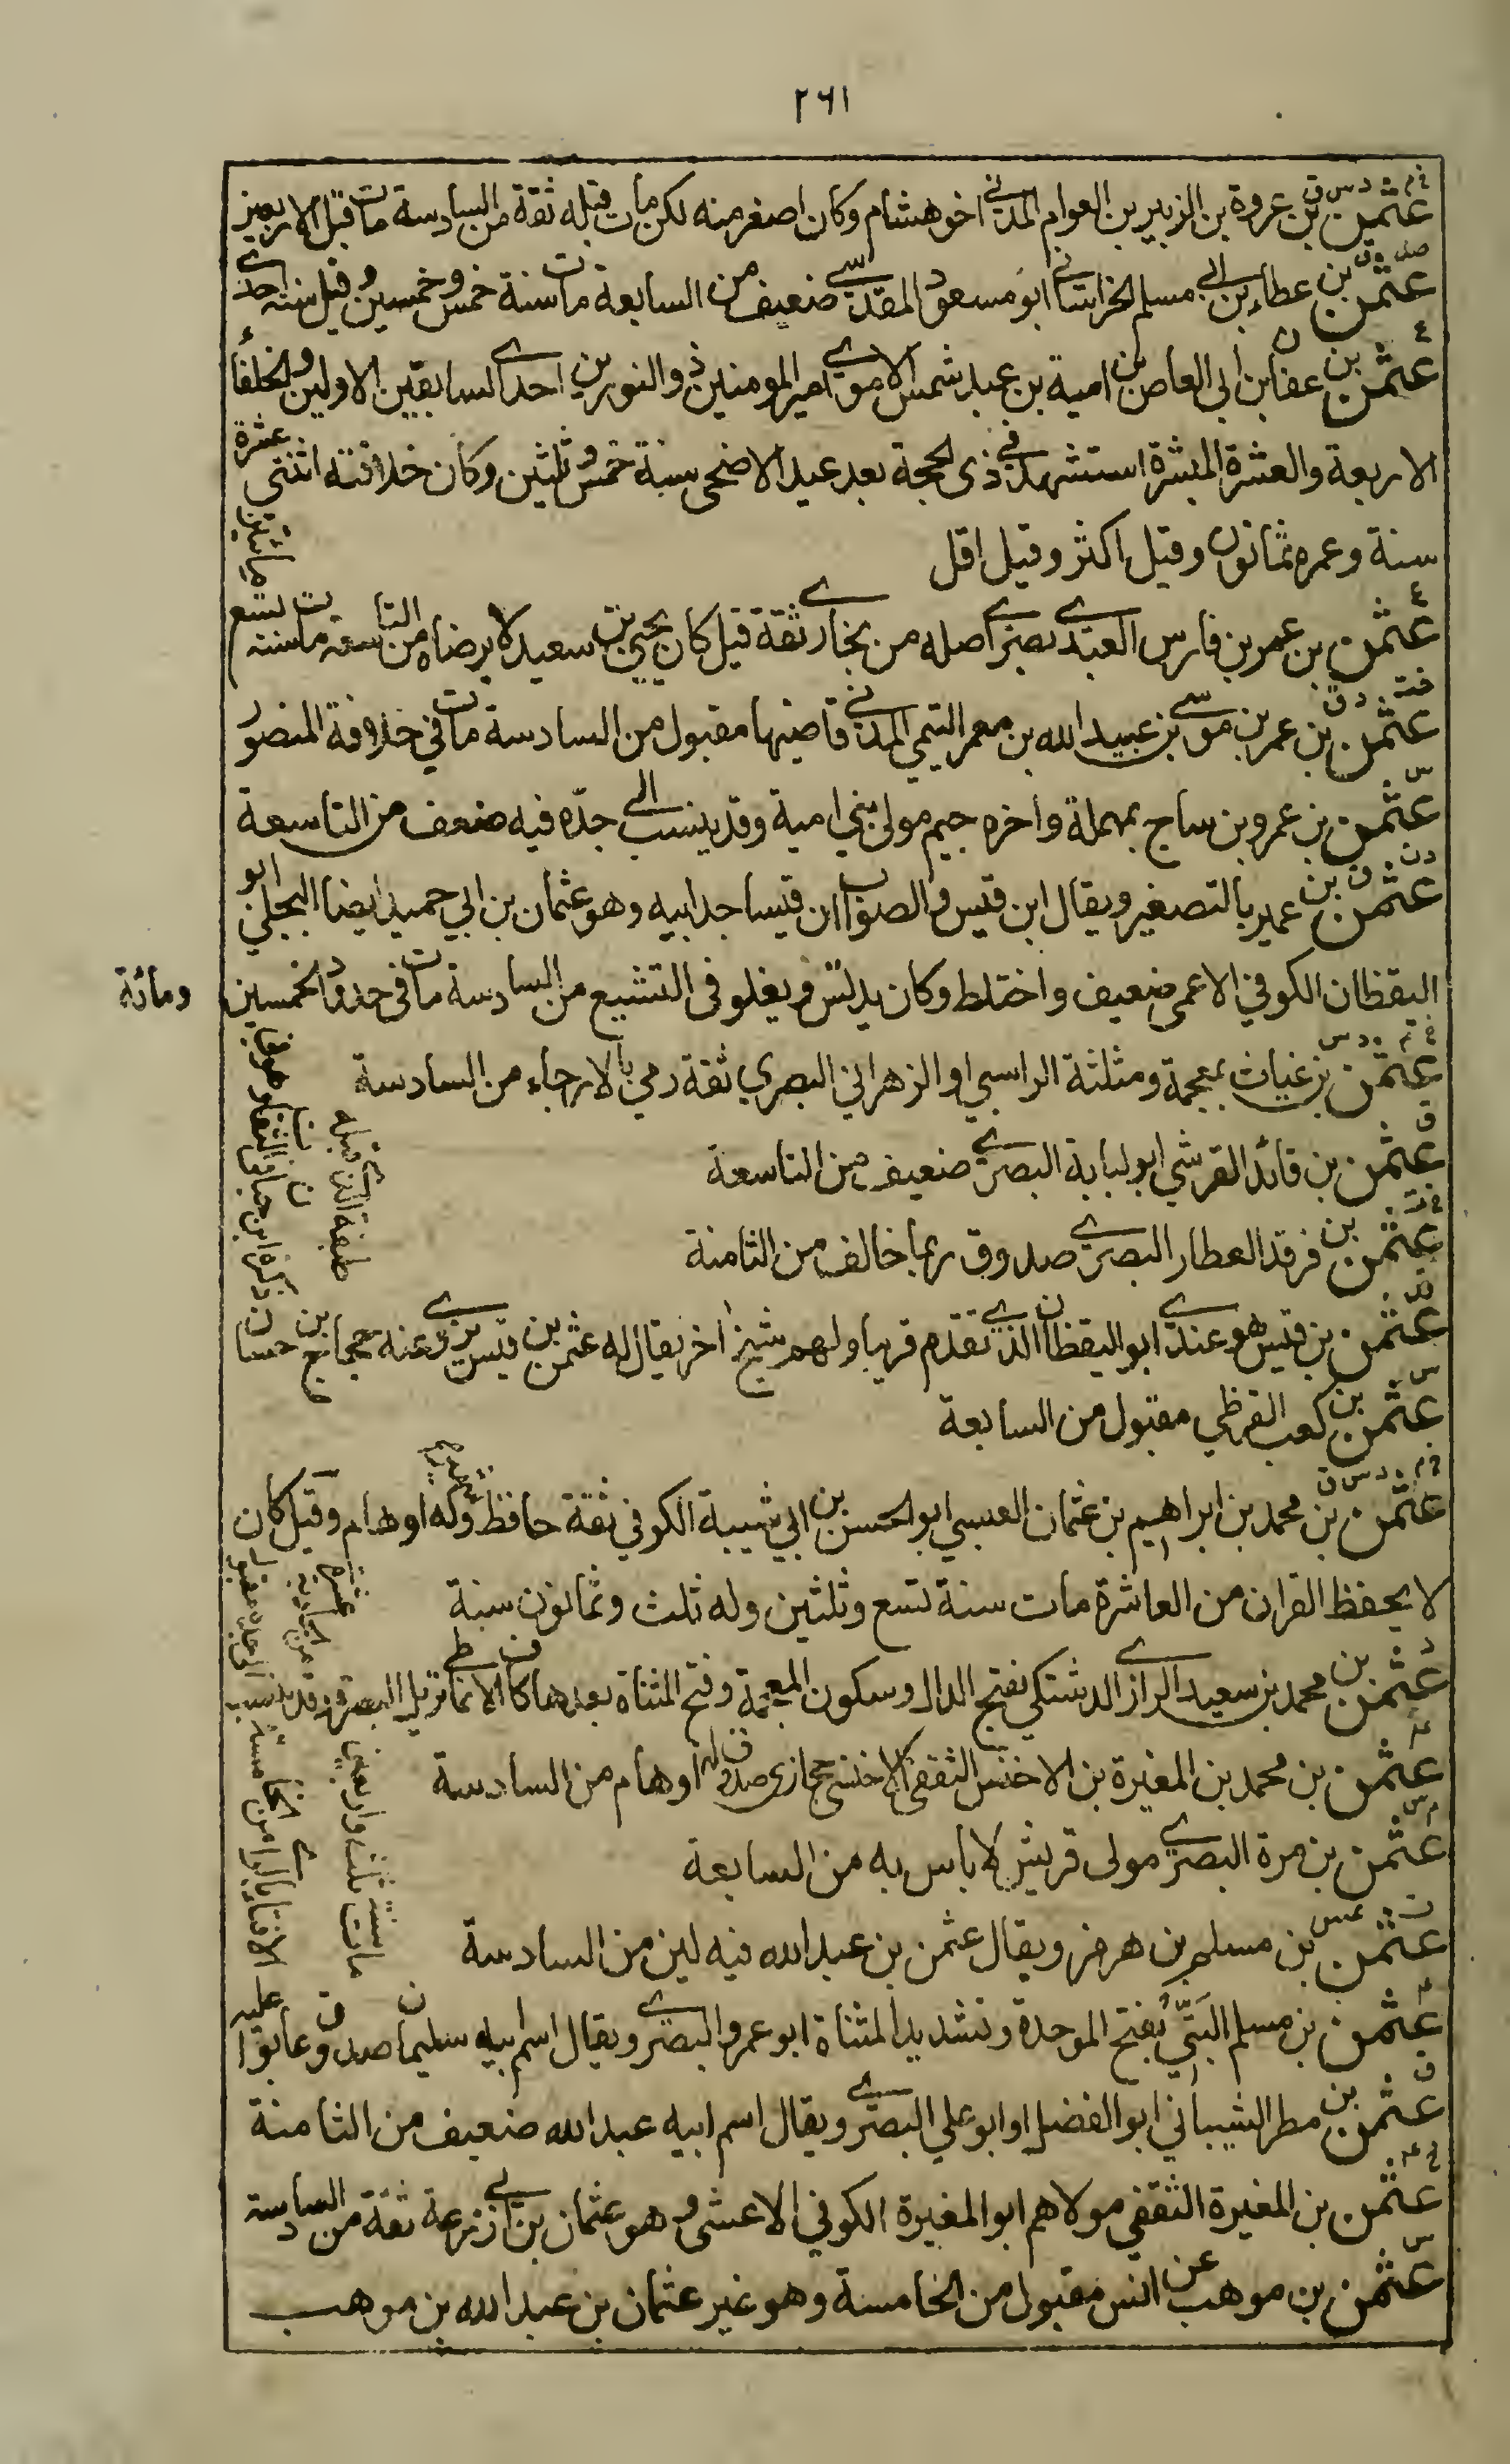 ٢٦١
خ م د س ق
عثمن بن عروة بن الزبير بن العوام المدني اخو هشام وكان اصغر منه لكن مات قبله ثقة من السادسة مات قبل الاربعين
عثمن بن عطاء بن ابي مسلم الخراساني ابو مسعود المقدسي ضعيف من السابعة مات سنة خمس وخمسين وقيل سنة احدى
ع
عثمن بن عفان بن ابي العاص بن امية بن عبد شمس الاموي امير المومنين ذو النورين احد السابقين الاولين والخلفاء
الاربعة والعشرة المبشرة استشهد في ذى الحجة بعد عيد الاضحى سنة خمس وثلثين وكان خلافته اثنتى عشرة
سنة وعمره ثمانون وقيل اكثر وقيل اقل
ع
عثمن بن عمر بن فارس العبدي بصري اصله من بخاري ثقة قيل كان يحيى بن سعيد لا يرضاه من التاسعة مات سنة تسع
ومائتين
خت د ق
عثمن بن عمر بن موسى بن عبيد الله بن معمر التيمي المدني قاضيها مقبول من السادسة مات في خلافة المنصور
س
عثمن بن عمرو بن ساج بمهملة واخره جيم مولى بني امية وقد ينسب الى جده فيه ضعف من التاسعة
د ت ق
عثمن بن عمير بالتصغير ويقال ابن قيس والصواب ان قيسا جد ابيه وهو عثمان بن ابي حميد ايضا البجلي ابو
اليقظان الكوفي الاعمى ضعيف واختلط وكان يدلس ويغلو فى التشيع من السادسة مات فى حدود الخمسين
ومائة
عثمن بن غياث بمعجمة ومثلثة الراسبي او الزهراني البصري ثقة رمي بالارجاء من السادسة
ق
عثمن بن قائد القرشي ابو لبابة البصري ضعيف من التاسعة
عثمن بن فرقد العطار البصري صدوق ربما خالف من الثامنة
عثمن بن قيس هو عندي ابو اليقظان الذي تقدم قريبا ولهم شيخ اخر يقال له عثمن بن قيس يروي عنه حجاج بن حسان
س
عثمن بن كعب القرظي مقبول من السابعة
خ م د س ق
عثمن بن محمد بن ابراهيم بن عثمان العبسي ابو الحسن بن ابي شيبة الكوفي ثقة حافظ وله اوهام وقيل كان
لا يحفظ القران من العاشرة مات سنة تسع وثلثين وله ثلث وثمانون سنة
د
عثمن بن محمد بن سعيد الرازي الدشتكي بفتح الدال وسكون المعجمة وفتح المثناة بعدها كاف الانماطي نزيل البصرة وقد ينسب
الى جده مقبول
عثمن بن محمد بن المغيرة بن الاخنس الثقفي الاخنسي حجازي صدوق له اوهام من السادسة
م س
عثمن بن مرة البصري مولى قريش لا باس به من السابعة
ت عس
عثمن بن مسلم بن هرمز ويقال عثمن بن عبد الله فيه لين من السادسة
عثمن بن مسلم البتي بفتح الموحدة وتشديد المثناة ابو عمرو البصري ويقال اسم ابيه سليمان صدوق عابوا عليه
الافتاء بالراي من الخامسة
مات سنة ثلث واربعين
ق
عثمن بن مطر الشيباني ابو الفضل او ابو علي البصري ويقال اسم ابيه عبد الله ضعيف من الثامنة
خ عه
عثمن بن المغيرة الثقفي مولاهم ابو المغيرة الكوفي الاعشى وهو عثمان بن ابي زرعة ثقة من السادسة
س
عثمن بن موهب عن انس مقبول من الخامسة وهو غير عثمان بن عبد الله بن موهب